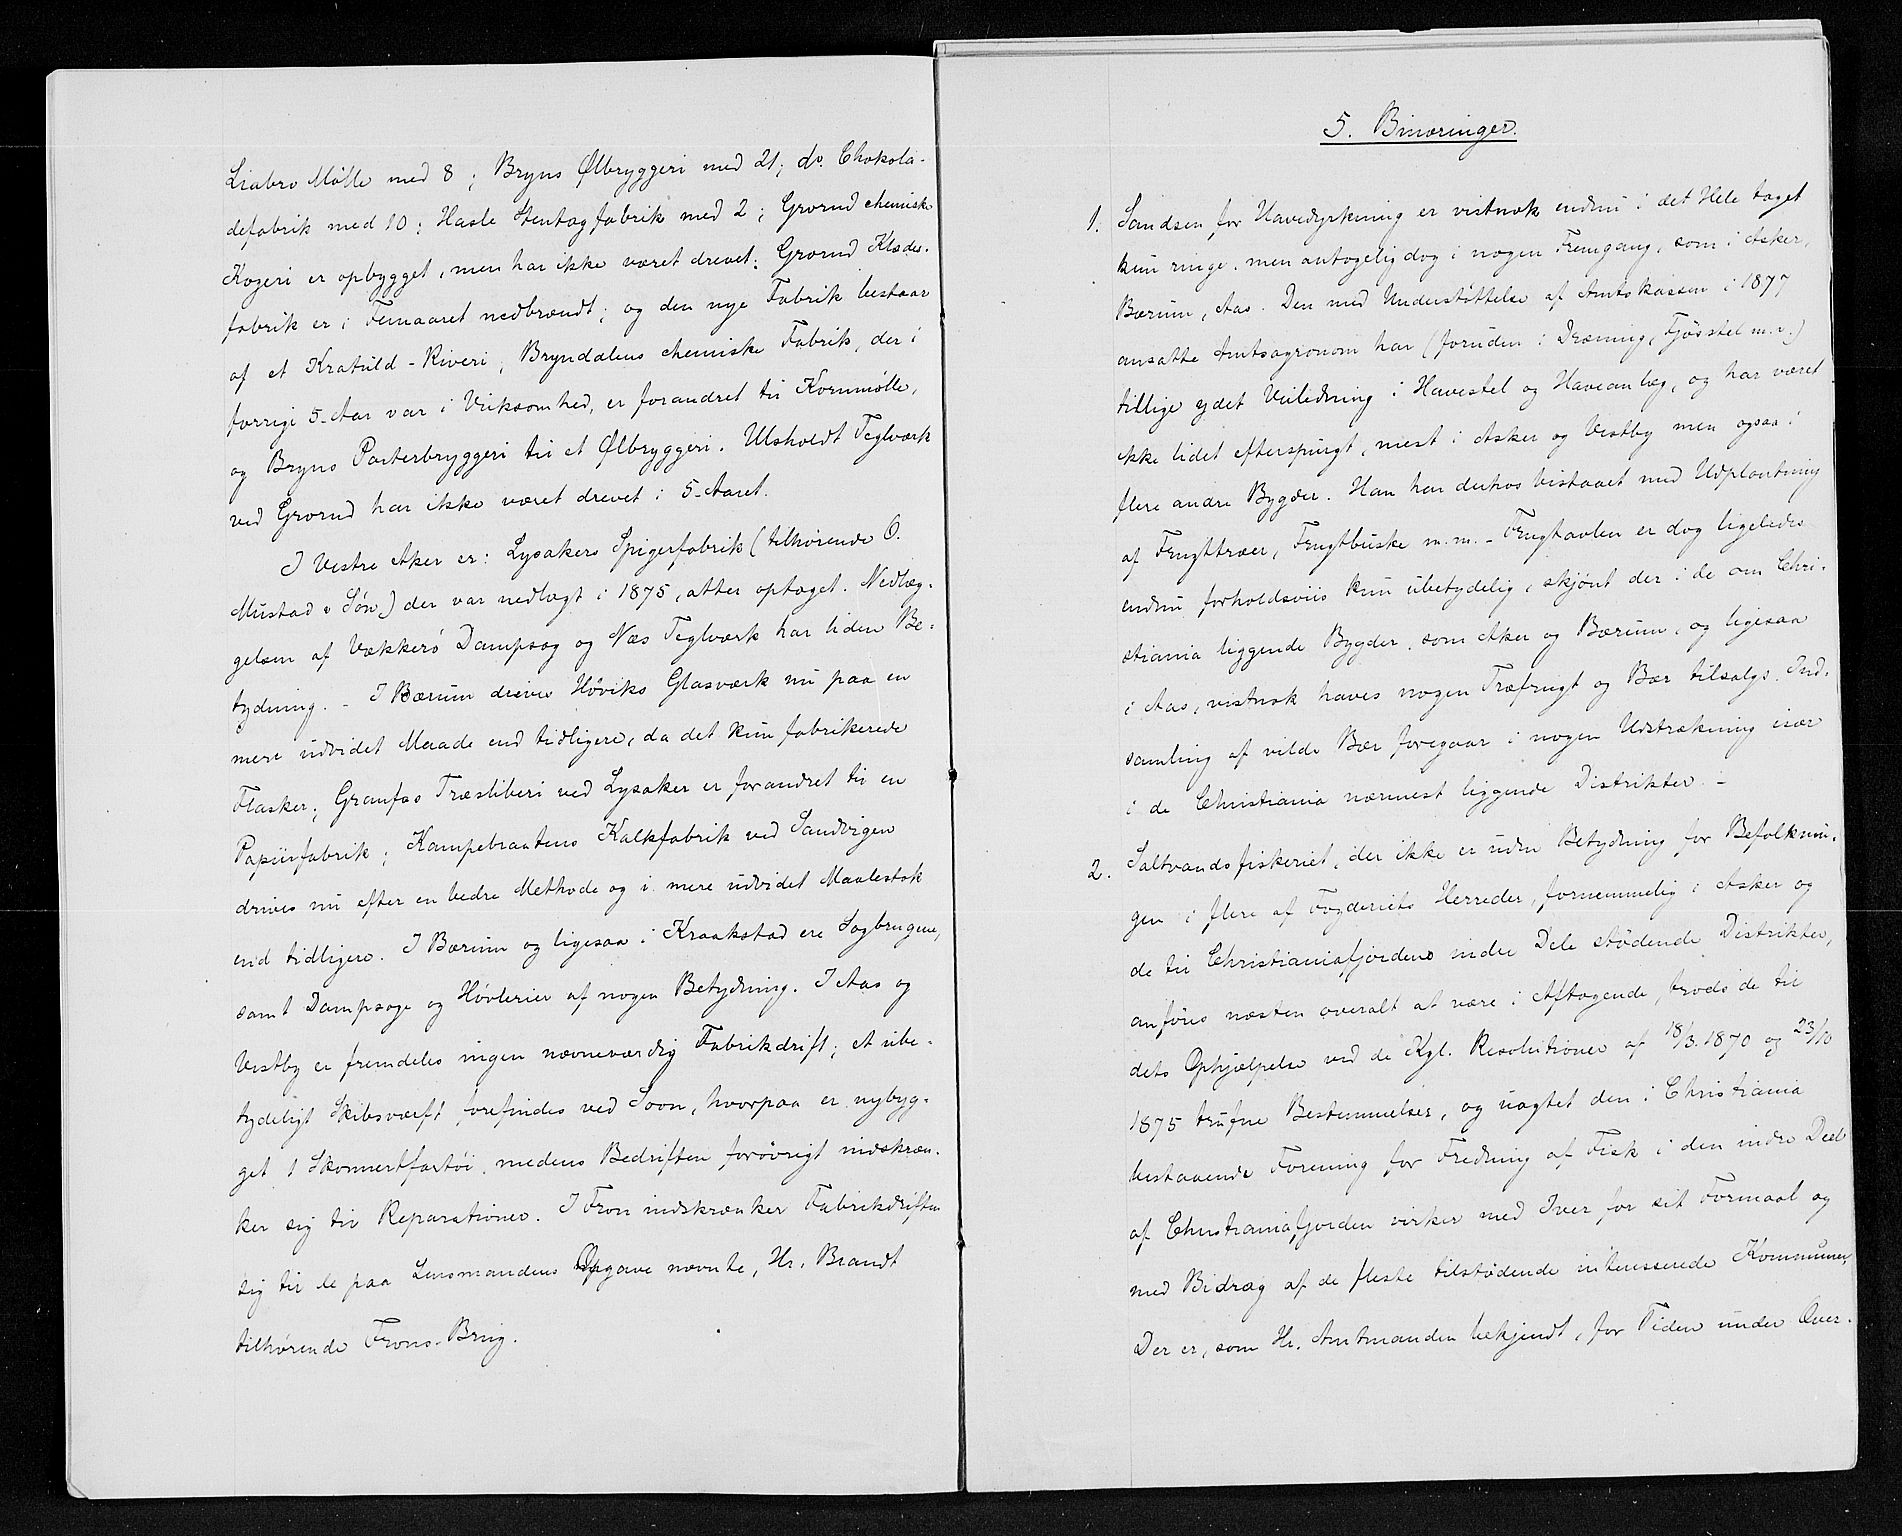 Liabro Mølle med 8; Bryns Ølbryggeri med 21; do. Chokola-
defabrik med 10; Hasle Stentøgfabrik med 2; Grorud chemiske
Kogeri er opbygget, men har ikke været drevet; Grorud Klæde-
fabrik er i Femaaret nedbrændt; og den nye Fabrik bestaar
af et Kratuld-Riveri; Bryndalens chemiske Fabrik, der i
forrige 5-Aar var i Virksomhed, er forandret til Kornmølle,
og Bryns Porterbryggeri til et Ølbryggeri. Ulsholdt Teglværk
ved Grorud har ikke været drevet i 5-Aaret.
I Vestre Aker er: Lysakers Spigerfabrik (tilhørende O.
Mustad & Søn) der var nedlagt i 1875, atter optaget. Nedlæg-
gelsen af Vækkerø Dampsag og Næs Teglværk har liden Be-
tydning. - I Bærum drives Høviks Glasværk nu paa en
mere udvidet Maade end tidligere, da det kun fabrikerede
Flasker; Granfos Træsliberi ved Lysaker er forandret til en
Papiirfabrik; Kampebraatens Kalkfabrik ved Sandvigen
drives nu efter en bedre Methode og i mere udvidet Maalestok
end tidligere. I Bærum og ligesaa i Kraakstad ere Sagbrugene,
samt Dampsage og Høvlerier af nogen Betydning. I Aas og
Vestby er fremdeles ingen nævneværdig Fabrikdrift; et ube-
tydeligt Skibsværft forefindes ved Soon, hvorpaa er nybyg-
get 1 Skonnertfartøi, medens Bedriften forøvrigt indskræn-
ker sig til Reparationer. I Fron indskrænker Fabrikdriften
sig til de paa Lensmandens Opgave nævnte, Hr. Brandt
tilhørende Frons-Brug.
5. Binæringer.
1. Sandsen for Havedyrkning er vistnok endnu i det Hele taget
kun ringe, men antagelig dog i nogen Fremgang, som i Asker,
Bærum, Aas. Den med Understøttelse af Amtskassen i 1877
ansatte Amtsagronom har (foruden i Dræning, Fjøsstel m.v.)
tillige ydet Veiledning i Havestel og Haveanlæg, og har været
ikke lidet efterspurgt, mest i Asker og Vestby men ogsaa i
flere andre Bygder. Han har derhos bistaaet med Udplantning
af Frugttræer, Frugtbuske m.m. - Frugtavlen er dog ligeledes
endnu forholdsviis kun ubetydelig, skjønt der i de om Chri-
stiania liggende Bygder, som Aker og Bærum, og ligesaa
i Aas, vistnok haves nogen Træfrugt og Bær tilsalgs. Ind-
samling af vilde Bær foregaar i nogen Udstrækning især
i de Christiania nærmest liggende Distrikter. -
2. Saltvandsfiskeriet, der ikke er uden Betydning for Befolknin-
gen i flere af Fogderiets Herreder, fornemmelig i Asker og
de til Christianiafjordens indre Dele stødende Distrikter,
anføres næsten overalt at være i Aftagende, trods de til
dets Ophjælpelse ved de Kgl. Resolutioner af 18/3. 1870 og 23/10
1875 trufne Bestemmelser, og uagtet den i Christiania
bestaaende Forening for Fredning af Fisk i den indre Deel
af Christianiafjorden virker med Iver for sit Formaal og
med Bidrag af de fleste tilstødende interesserede Kommuner.
Der er, som Hr. Amtmanden bekjendt, for Tiden under Over-